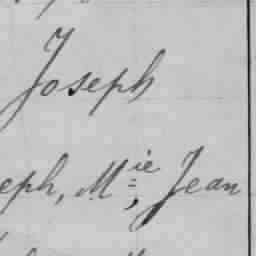 Joseph
eph, M.ie, Jean